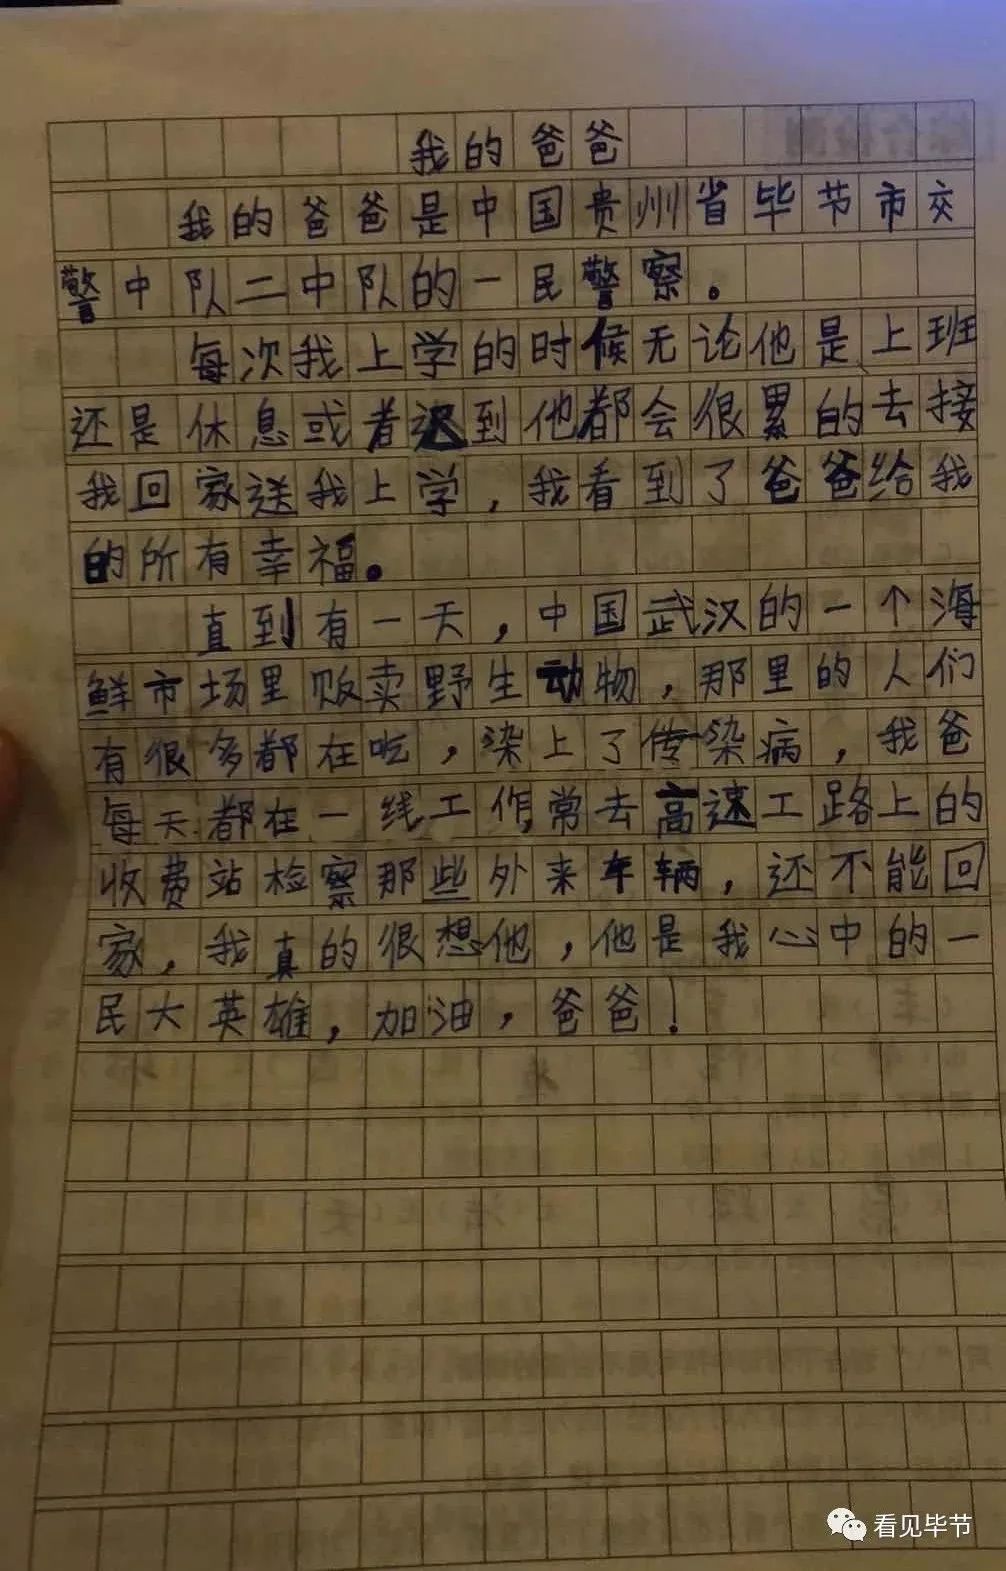 我的爸爸
我的爸爸是中国贵州省毕节市交
警中队二中队的一民警察。
每次我上学的时候无论他是上班
还是休息或者迟到他都会很累的去接
我回家送我上学，我看到了爸爸给我
的所有幸福。
直到有一天，中国武汉的一个海
鲜市场里贩卖野生动物，那里的人们
有很多都在吃，染上了传染病，我爸
每天都在一线工作，常去高速工路上的
收费站检察那些外来车辆，还不能回
家，我真的很想他，他是我心中的一
民大英雄，加油，爸爸！
看见毕节